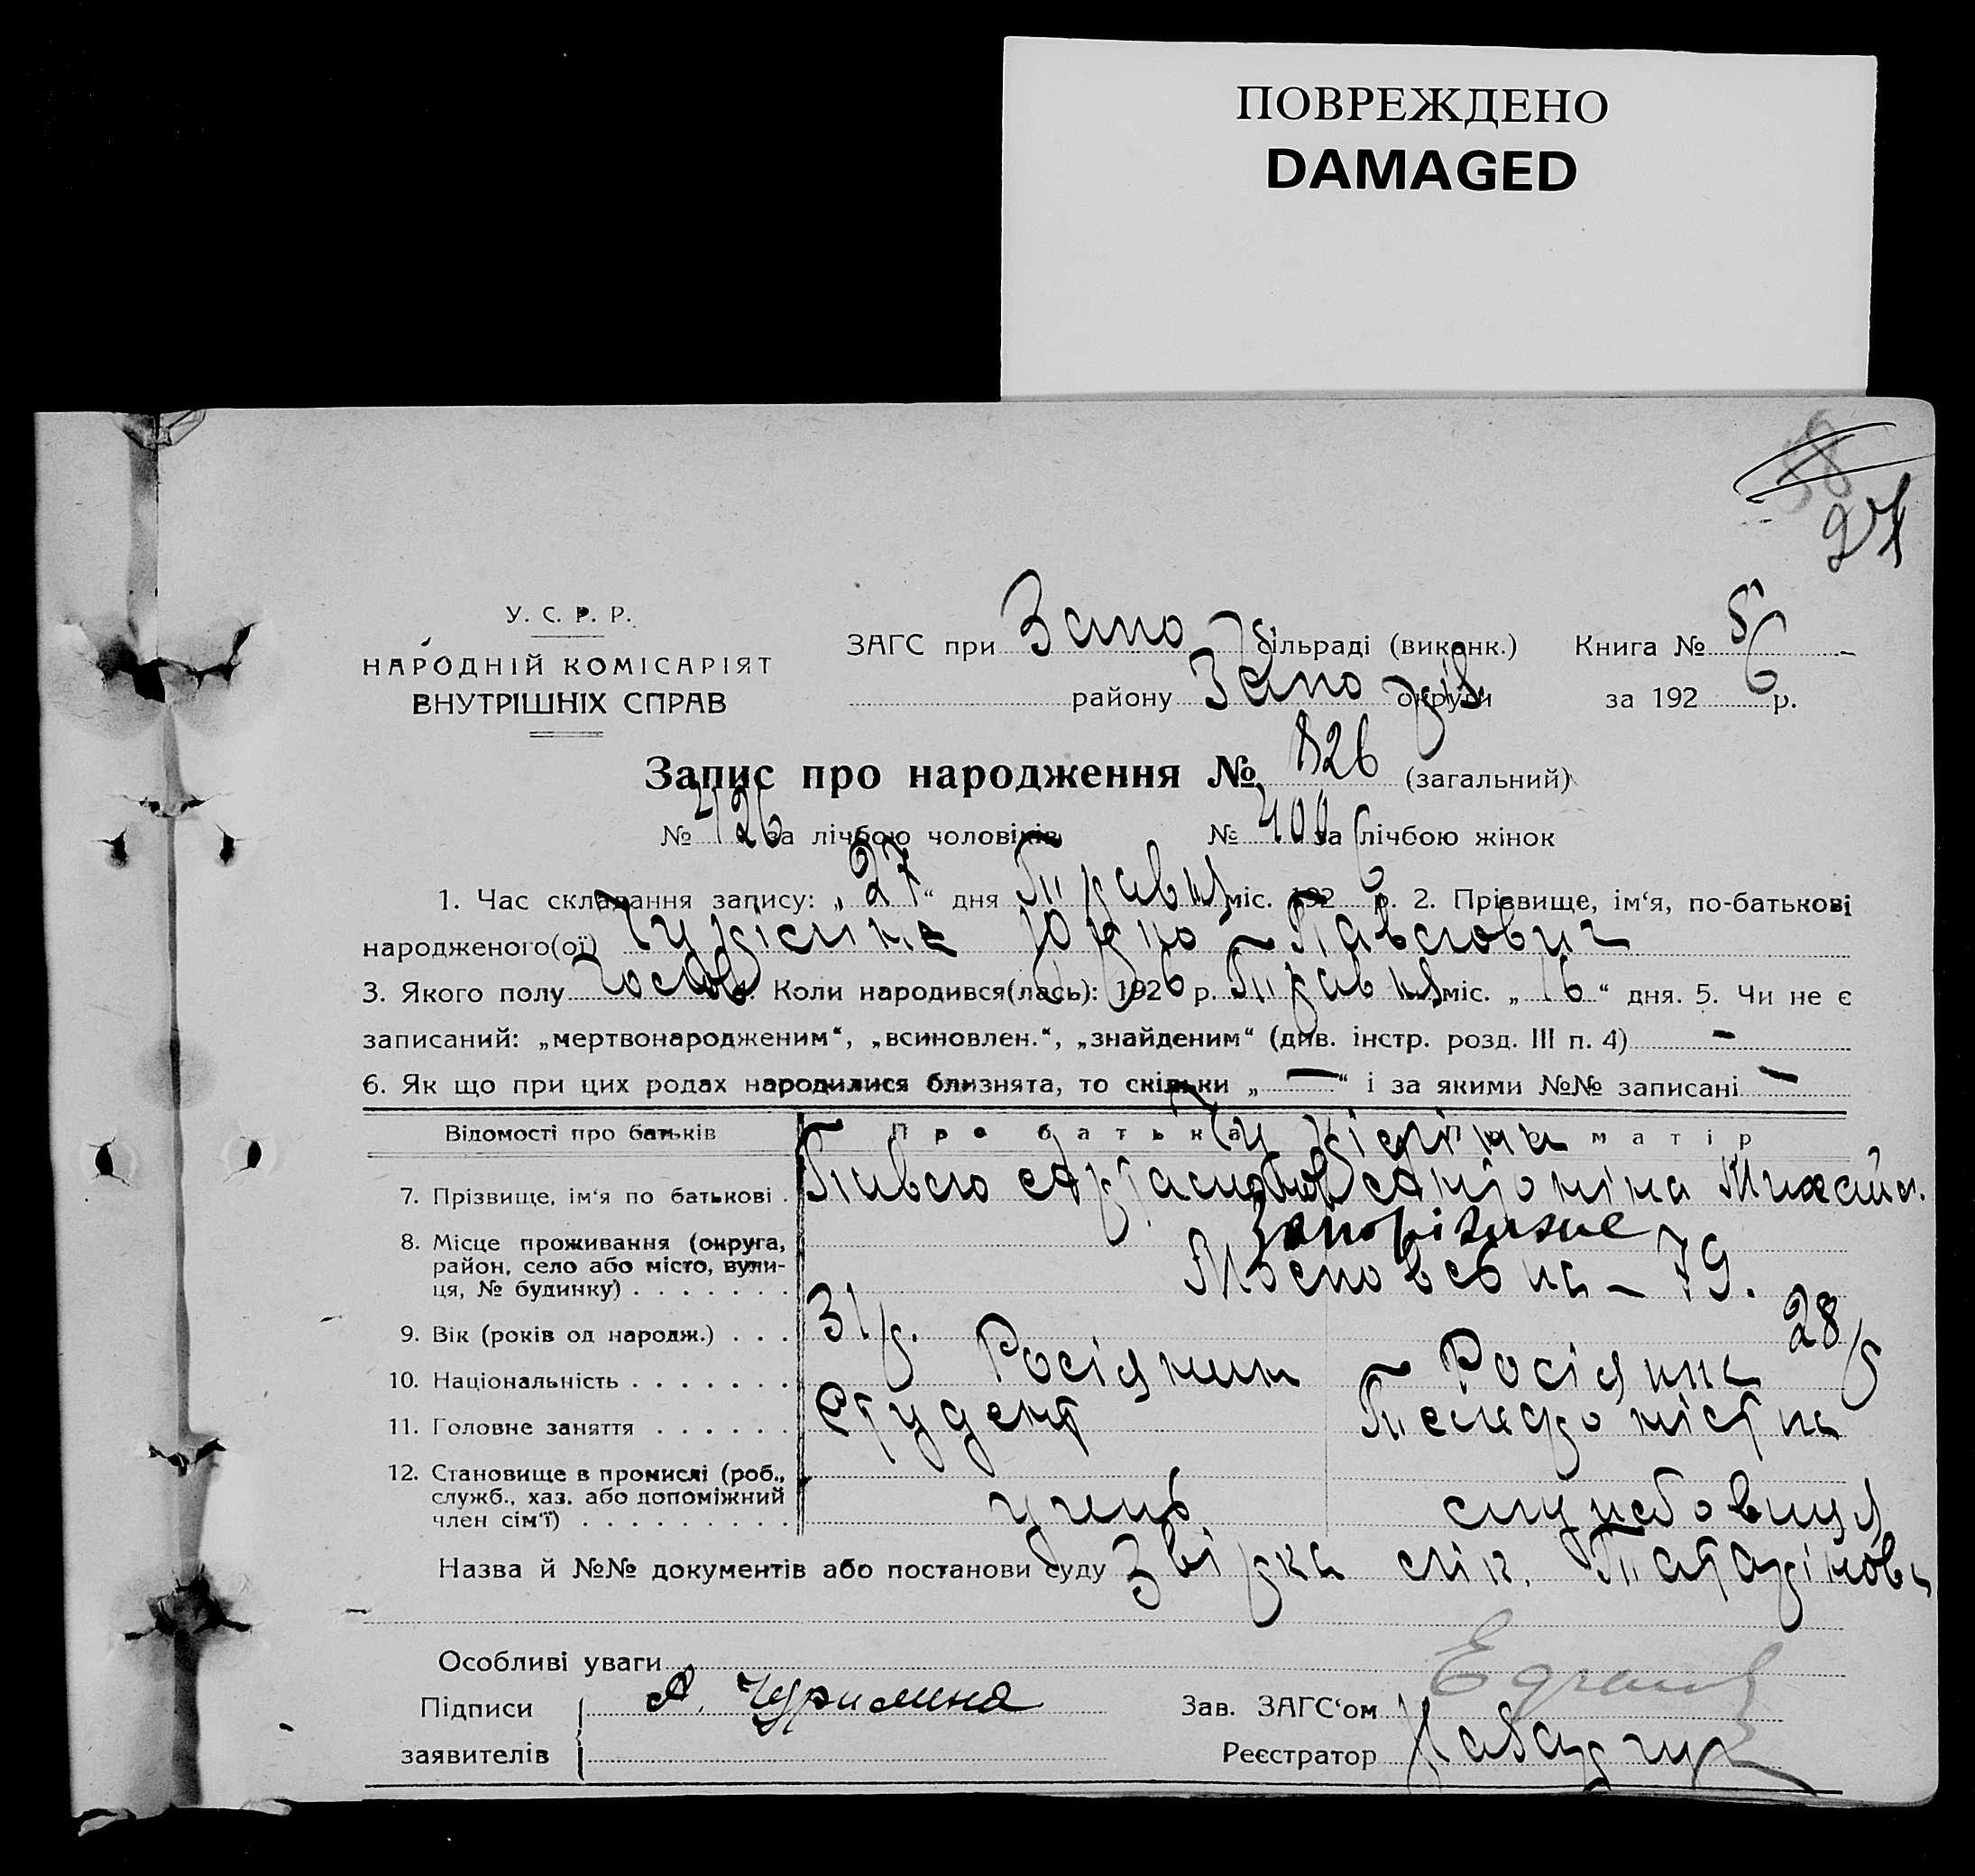 ПОВРЕЖДЕНО
DAMAGED
58
27
У. С. Р. Р.
НАРОДНІЙ КОМІСАРІЯТ
ВНУТРІШНІХ СПРАВ
ЗАГС при Запо більраді (виконк.) Книга № 5
району Запоріз округи за 1926 р.
Запис про народження № 826 (загальний)
№ 426 за лічбою чоловіків № 400 за лічбою жінок
1. Час складання запису: „27“ дня Травня міс. 1926 р. 2. Прізвище, ім‘я, по-батькові
народженого(ої) Павлович
3. Якого полу Чолов. 4. Коли народився(лась): 1926 р. Травня міс. „16“ дня. 5. Чи не є
записаний: „мертвонародженим“, „всиновлен.“, „знайденим“ (див. інстр. розд. III п. 4) –
6. Як що при цих родах народилися близнята, то скільки „—“ і за якими №№ записані —
Відомості про батьків Про батька Про матір
7. Прізвище, ім‘я по батькові . Павло Антоніна Михайл.
8. Місце проживання (округа, Запоріжжє
район, село або місто, вули- Московська – 79.
ця, № будинку) . . . . . . .
9. Вік (років од народж.) . . . 31 р. 28 р
10. Національність . . . . . . . Росіянин Росіянка
11. Головне заняття . . . . . . Студент Телефоністка
12. Становище в промислі (роб.,
служб., хаз. або допоміжний учень службовиця
член сім‘ї) . . . . . . . . .
Назва й №№ документів або постанови суду Звірка лік. Татарінова
—
Особливі уваги
Підписи А. Чурилина Зав. ЗАГС‘ом
заявителів Реєстратор